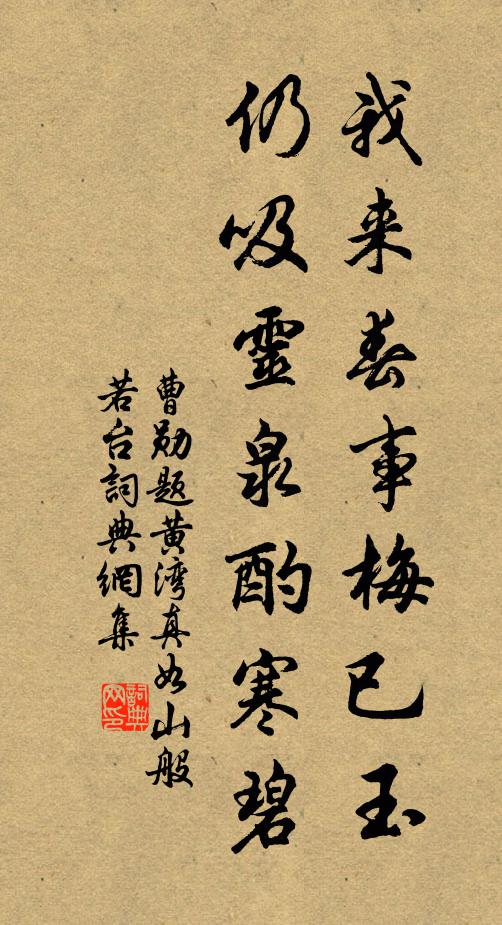 我来春事梅已玉
仍吸靈泉酌寒碧
曹勋题黄湾真如山般
若台詞典網集
詞典网印